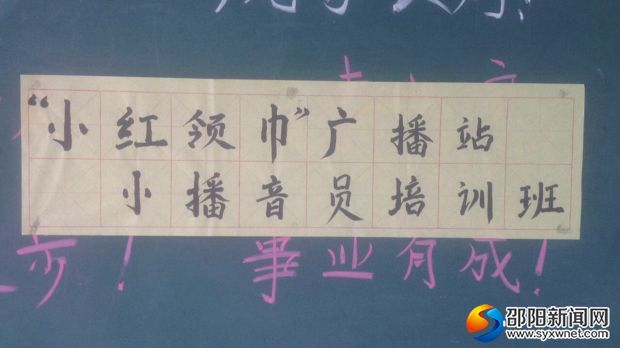 “小红领巾”广播站
小播音员培训班
步！ 事业有成！
邵阳新闻网
www.syxwnet.com